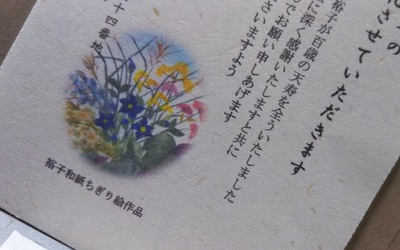 させていただきます
裕子が百歳の天寿を全ういたしました
に深く感謝いたしますと共に
てお願い申しあげます
ざいますよう
十四番地
裕子和紙ちぎり絵作品